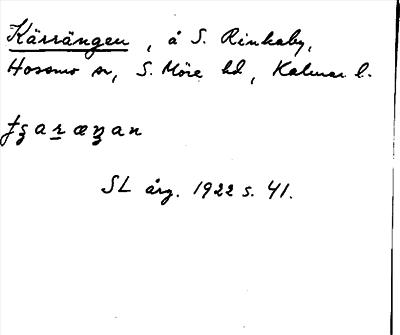 Kärrängen, å S. Rinkaby,
Hossmo sn, S. Möre hd, Kalmar l.
SL årg. 1922 s. 41.